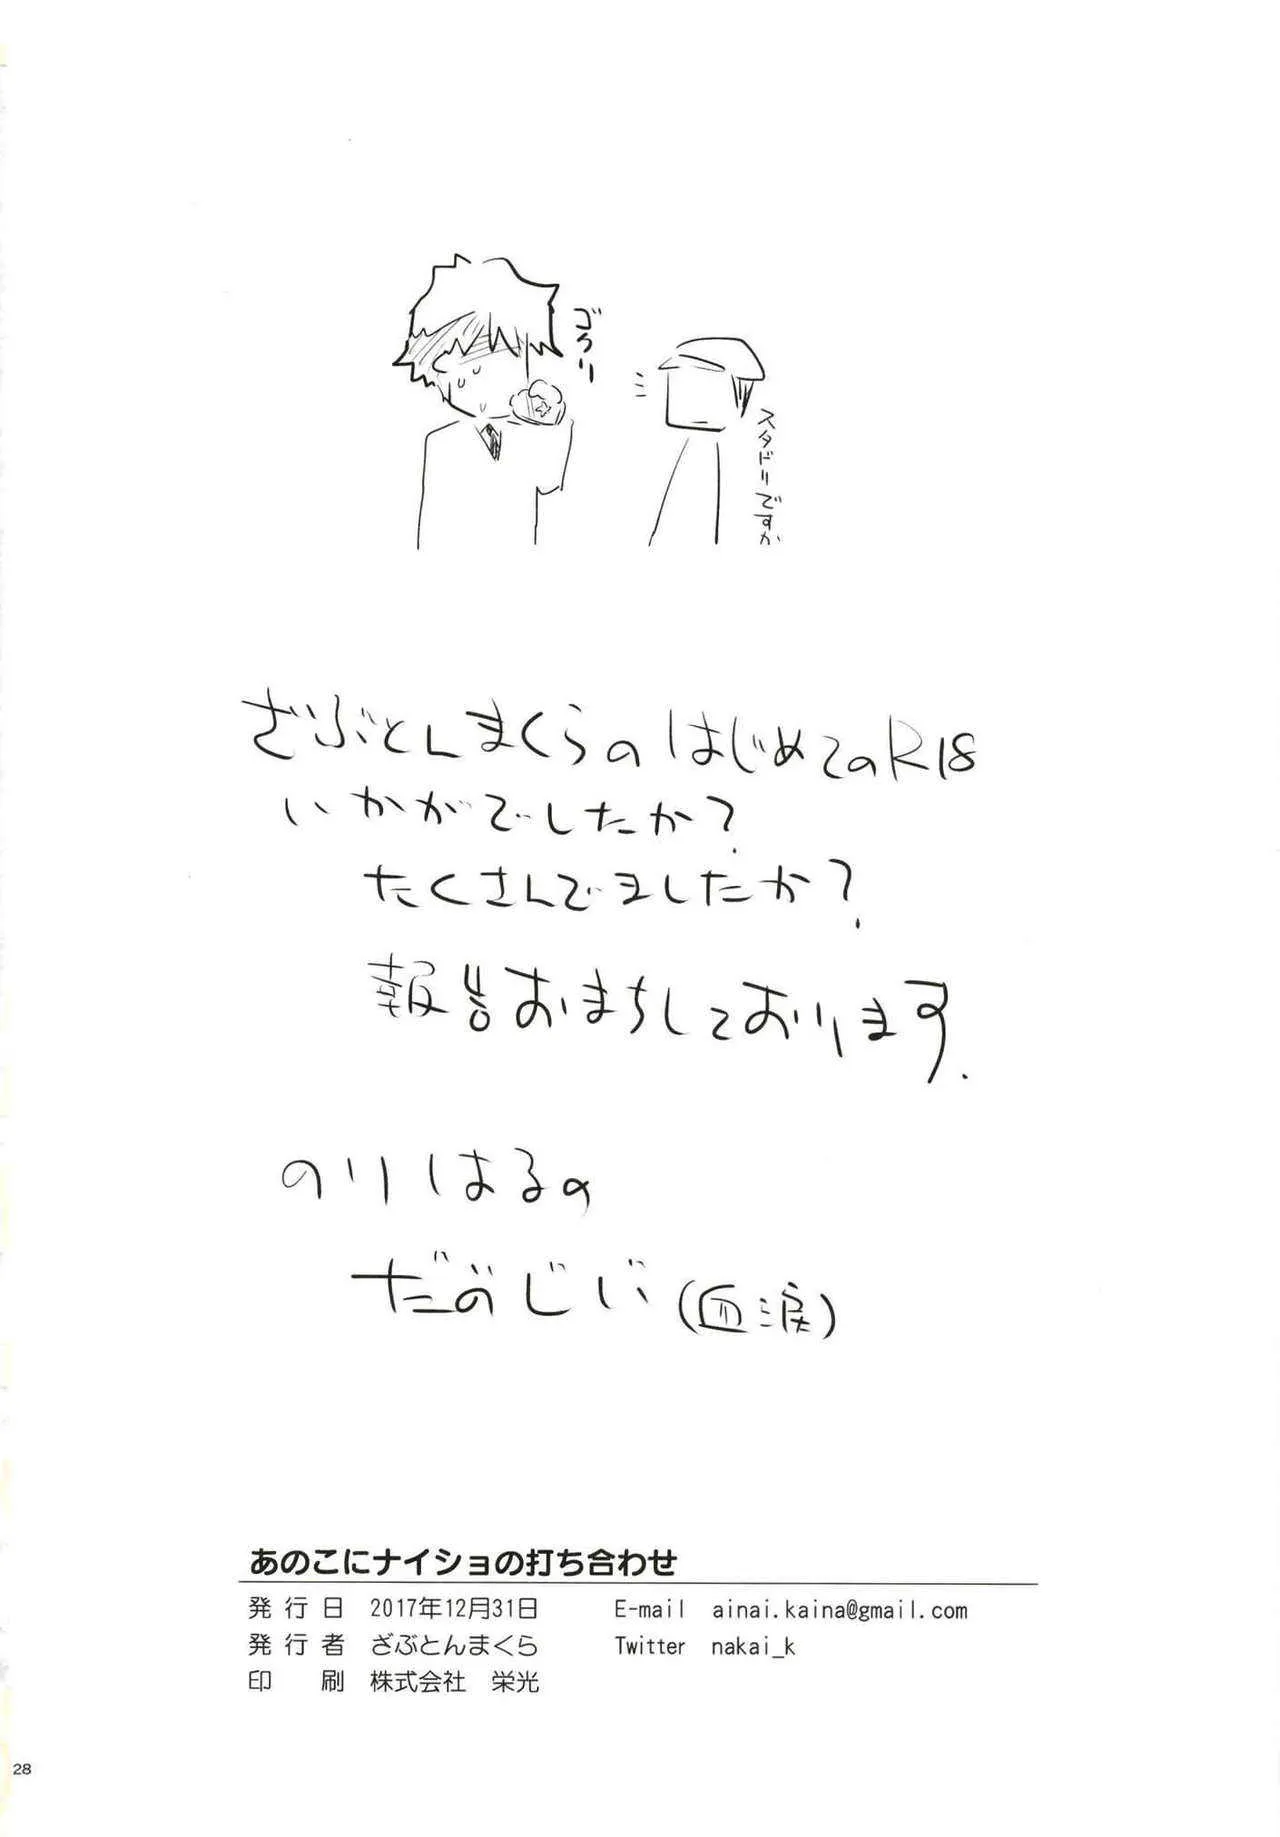 ゴクリ
スタドリですか
ざぶとんまくらのはじめてのR18
いかがでしたか?
たくさんでましたか?
報告おまちしております.
のりはるの
だめじじい(血涙)
あのこにナイショの打ち合わせ
発行日 2017年12月31日 E-mail ainai.kaina@gmail.com
発行者 ざぶとんまくら Twitter nakai_k
印刷 株式会社 栄光
28